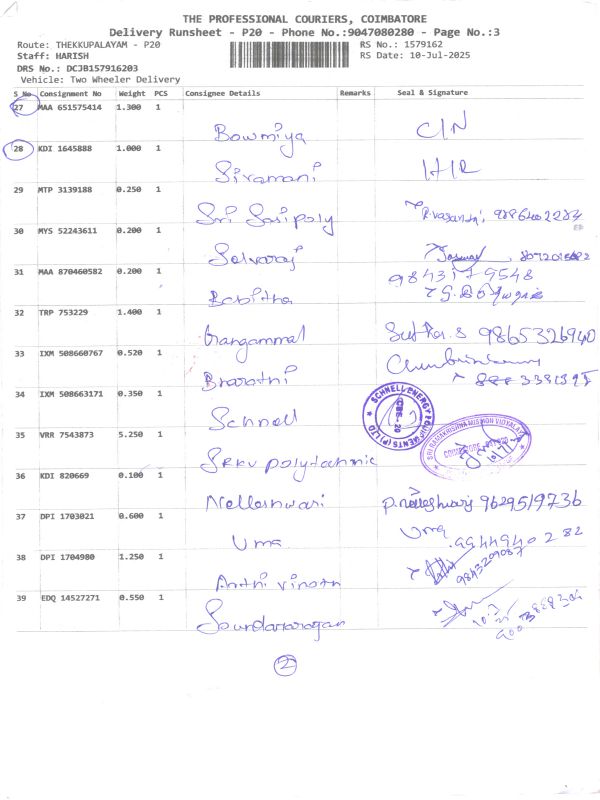 THE PROFESSIONAL COURIERS, COIMBATORE
Delivery Runsheet - P20 - Phone No.:9047080280 - Page No.:3
Route: THEKKUPALAYAM - P20 RS No.: 1579162
Staff: HARISH RS Date: 10-Jul-2025
DRS No.: DCJB157916203
Vehicle: Two Wheeler Delivery
S No Consignment No Weight PCS Consignee Details Remarks Seal & Signature
27 MAA 651575414 1.300 1
Bowmiya C/N
28 KDI 1645888 1.000 1
Sivamani
29 MTP 3139188 0.250 1
Sri Sasi poly
30 MYS 52243611 0.200 1
Selvaraj
31 MAA 870460582 0.200 1 98431 79548
Babitha
32 TRP 753229 1.400 1
Gangammal 9865326940
33 IXM 508660767 0.520 1
Bharathi
34 IXM 508663171 0.350 1
Schnell
SCHNELL ENERGY EQUIPMENTS (P) LTD
CBE-20
35 VRR 7543873 5.250 1
SRI RAMAKRISHNA MISSION VIDYALAYA
SRKV polytechnic
36 KDI 820669 0.100 1
Nelleshwari P.Nelleshwari 9629519736
37 DPI 1703021 0.600 1
Uma Uma 99449 40282
38 DPI 1704980 1.250 1
9843209087
39 EDQ 14527271 0.550 1
Soundararajan
2